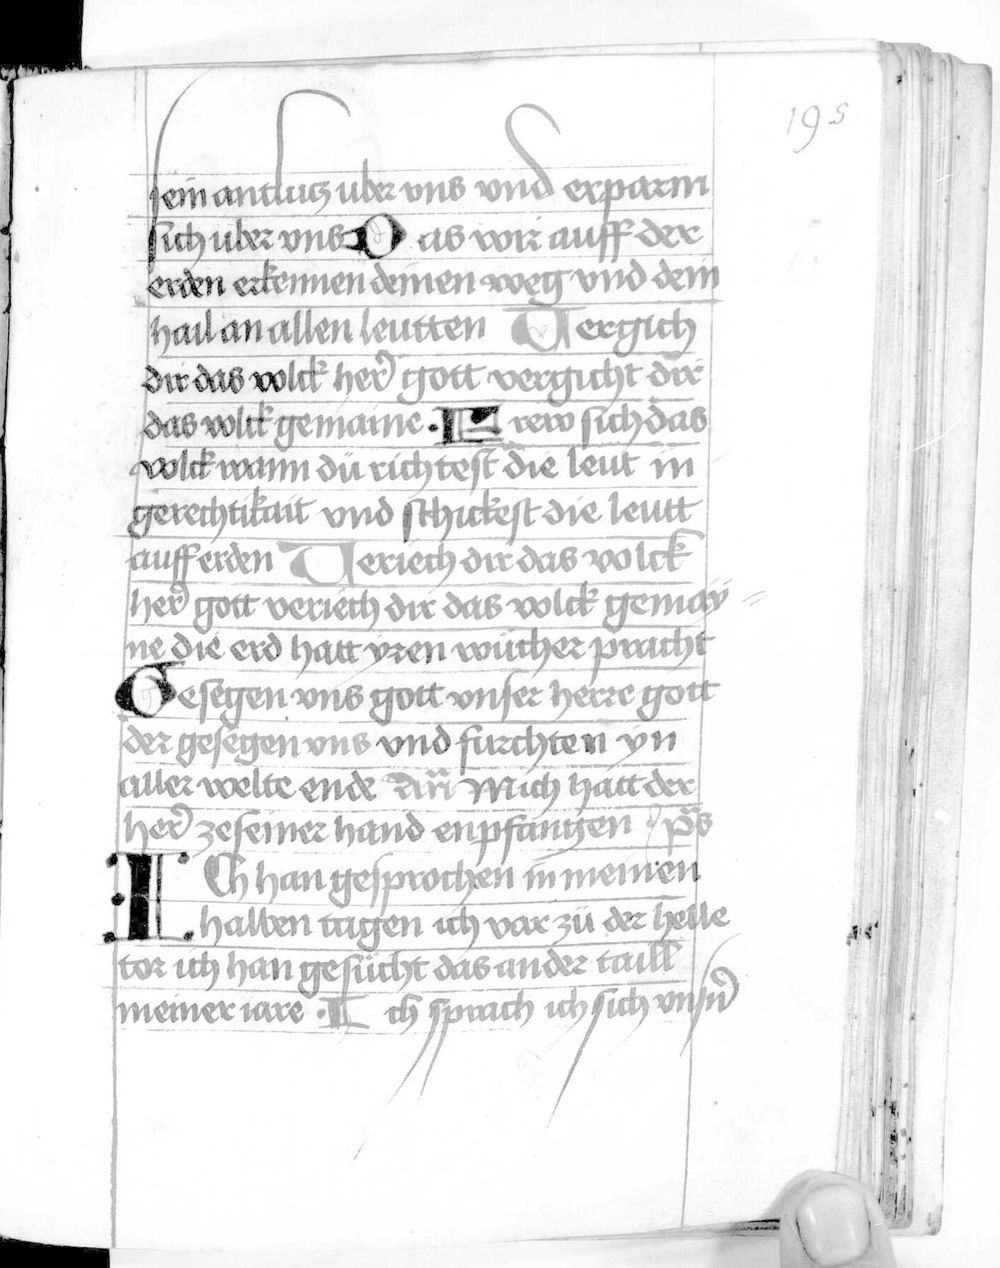 195
sein antlutz uber vns vnd erparm
sich uber vns Das wir auff der
erden erkennen deinen weg vnd dein
hail an allen leutten Vergich
dir das volck her̉ gott vergicht dir
das volck gemaine · Frew sich das
volck wann dü richtest die leut in
gerechtikait vnd schickest die leutt
auff erden Veriech dir das volck
her̉ gott veriech dir das volck gemaÿ
ne die erd hatt yren wücher pracht
Gesegen vns gott vnser herre gott
der gesegen vns vnd furchten yn
aller welte ende an̄ Mich hatt der
her̉ ze seiner hand enpfangen · ps
ICh han gesprochen in meinen
halben tagen ich var zü der helle
tor ich han gesücht das ander taill
meiner iare · Ich sprach ich sich vnsn̉